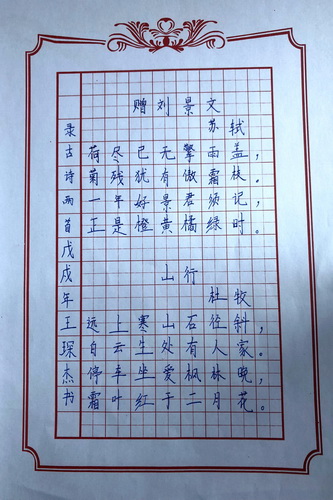 赠刘景文
苏轼
荷尽已无擎雨盖，
菊残犹有傲霜枝。
一年好景君须记，
正是橙黄橘绿时。
山行
杜牧
远上寒山石径斜，
白云生处有人家。
停车坐爱枫林晚，
霜叶红于二月花。
录古诗两首戊戌年王琛杰书